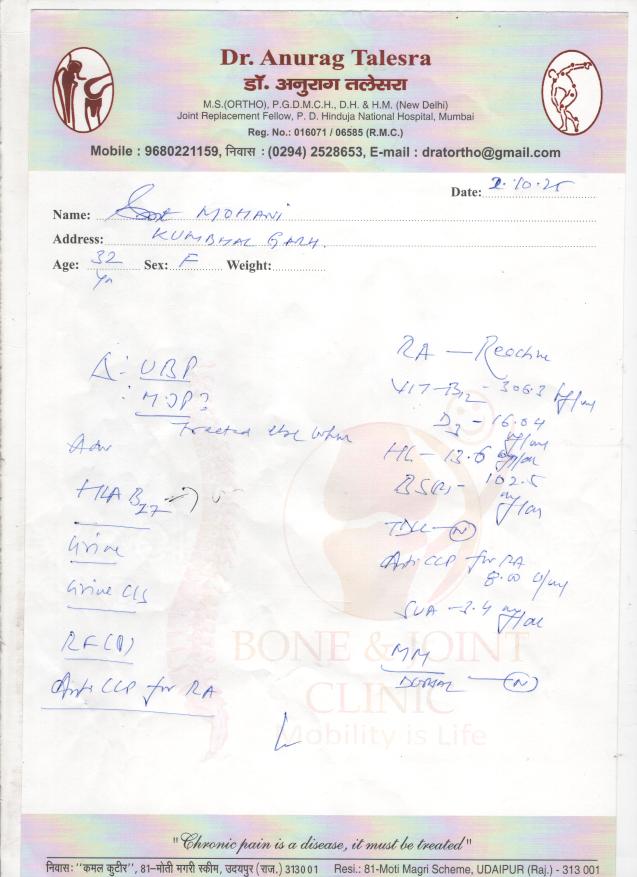 Dr. Anurag Talesra
डॉ. अनुराग तलेसरा
M.S.(ORTHO), P.G.D.M.C.H., D.H. & H.M. (New Delhi)
Joint Replacement Fellow, P. D. Hinduja National Hospital, Mumbai
Reg. No.: 016071 / 06585 (R.M.C.)
Mobile : 9680221159, निवास : (0294) 2528653, E-mail : dratortho@gmail.com
Date: 2.10.25
Name: MOHANI
Address: KUMBHAL GARH.
Age: 32 yr Sex: F Weight:
Δ: UBP
: MJP?
Treated else where
Adv
HLA B27
Urine
Urine C/S
RF(N)
Anti CCP for RA
RA — Reactive
VIT-B12 - 306.3
D3 - 16.04
HL - 13.6
BSR - 102.5
TDLC - N
Anti CCP for RA
8.00 U/ml
SUA - 3.4
MM
DORSAL — N
BONE & JOINT
CLINIC
Mobility is Life
"Chronic pain is a disease, it must be treated"
निवास: "कमल कुटीर", 81-मोती मगरी स्कीम, उदयपुर (राज.) 313001 Resi.: 81-Moti Magri Scheme, UDAIPUR (Raj.) - 313 001